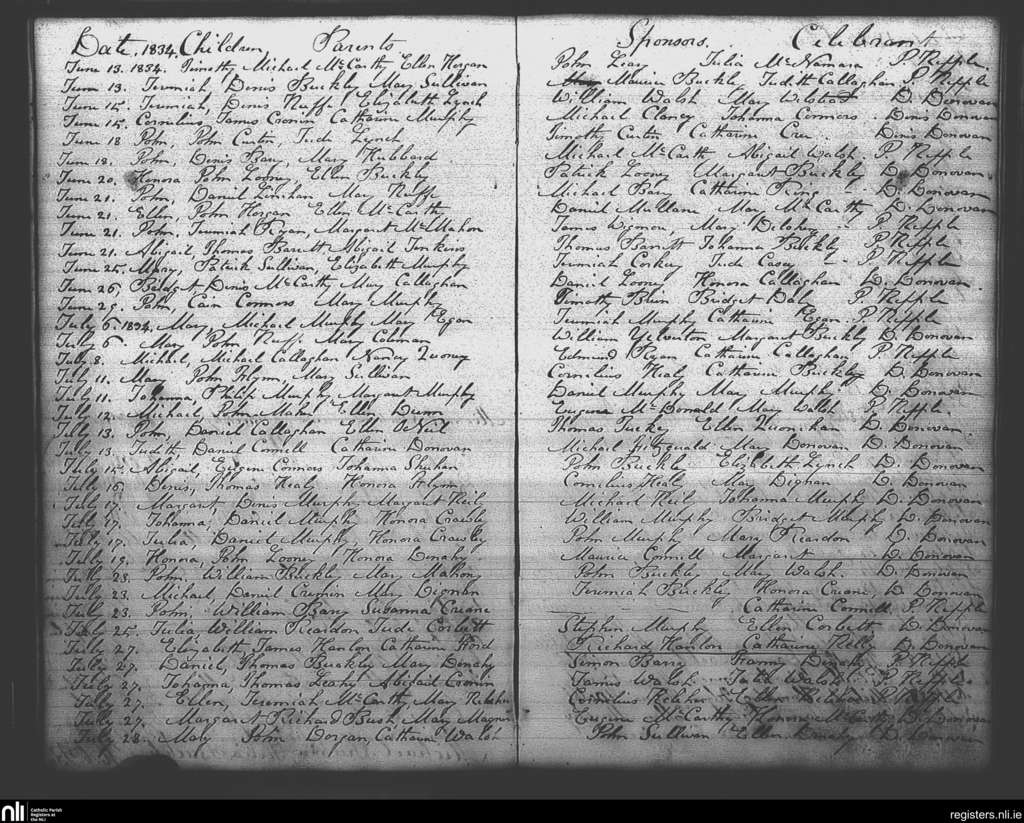 Date. 1834. Children, Parents. Sponsors. Celebrant
June 13. 1834. Timothy Michael McCarthy Ellen Horgan John Leary Julia McNamara P. Repple
June 13. Jeremiah, Denis Buckley Mary Sullivan Maurice Buckley Judith Callaghan, P. Repple
June 15. Jeremiah, Denis Elizabeth Lynch William Walsh Mary D. Donovan
June 15. Cornelius, James Cronin Catharine Murphy Michael Clancy Johanna Connors. Denis Donovan
June 18 John, John Curtin, Jude Lynch Timothy Curtin Catharine Denis Donovan
June 18. John, Denis Mary Hubbard Michael McCarthy Abigail Walsh. P. Repple
June 20. Honora John Looney, Ellen Buckley Patrick Looney Margaret Buckley D. Donovan
June 21. John, Daniel Linihan Mary Michael Catharine Ring D. Donovan
June 21. Ellen, John Horgan Ellen McCarthy Daniel Mullane Mary McCarthy D. Donovan
June 21. John, Jeremiah Ryan, Margaret McMahon James Mary P. Repple
June 21. Abigail, Thomas Barrett Abigail Junkins Thomas Barrett Johanna Buckley P. Repple
June 25. Mary, Patrick Sullivan, Elizabeth Murphy Jeremiah Corkery Jude Casey P. Repple
June 26. Denis McCarthy Mary Callaghan Daniel Looney Honora Callaghan D. Donovan
June 29. John, Cain Connors Mary Murphy Timothy Bridget Daly P. Repple
July 6. 1834. Mary, Michael Murphy Mary Egan Jeremiah Murphy Catharine Egan. P. Repple
July 6. Mary John Mary Coleman William Yelverton Margaret Buckley D. Donovan
July 8. Michael, Michael Callaghan Nancy Edmund Ryan Catharine Callaghan, P. Repple
July 11. Mary John Flynn, Mary Sullivan Cornelius Healy Catharine Buckley D. Donovan
July 11. Johanna, Philip Murphy, Margaret Murphy Daniel Murphy Mary Murphy D. Donovan
July 12. Michael, John Ellen Dunn Eugene McDonald Mary Walsh P. Repple.
July 13. John, Daniel Callaghan Ellen ONeil Thomas Tuckey Ellen D. Donovan
July 13. Judith, Daniel Connell Catharine Donovan Michael Fitzgerald Mary Donovan D. Donovan
July 15. Abigail, Eugene Connors Johanna Shehan John Buckley Elizabeth Lynch D. Donovan
July 16. Denis, Thomas Healy Honora Flynn Cornelius Healy Mary D. Donovan
July 17. Margaret Denis Murphy Margaret Neil Michael Neil Johanna Murphy D. Donovan
July 17. Johanna, Daniel Murphy Honora Crawley William Murphy Bridget Murphy D. Donovan
July 17. Julia, Daniel Murphy, Honora Crawley John Murphy Mary Reardon D. Donovan
July 19. Honora, John Looney Honora Donahy Maurice Connell Margaret D. Donovan
July 23. John, William Buckley Mary Mahony John Buckley Mary Walsh. D. Donovan
July 23. Michael, Daniel Cremin Mary Jeremiah Buckley Honora Creane, D. Donovan
July 23. John, William Barry Susanna Creane Catharine Connell, P. Repple
July 25. Julia, William Reardon Jude Corbett Stephen Murphy Ellen Corbett D. Donovan
July 27. Elizabeth, James Hanlon Catharine Ford Richard Hanlon Catharine Kelly D. Donovan
July 27. Daniel, Thomas Buckley Mary Donahy Simon Barry P. Repple
July 27. Johanna, Thomas Leahy Abigail Cronin James Walsh Walsh P. Repple
July 27. Ellen, Jeremiah McCarthy Mary Keleher Cornelius Keleher Ellen
July 27. Margaret Richard Bush, Mary Eugene McCarthy Honora McCarthy D. Donovan
July 28. Mary John Dorgan, Catharine Walsh John Sullivan Ellen D. Donovan
nli Catholic Parish
Registers at
the NLI
registers.nli.ie